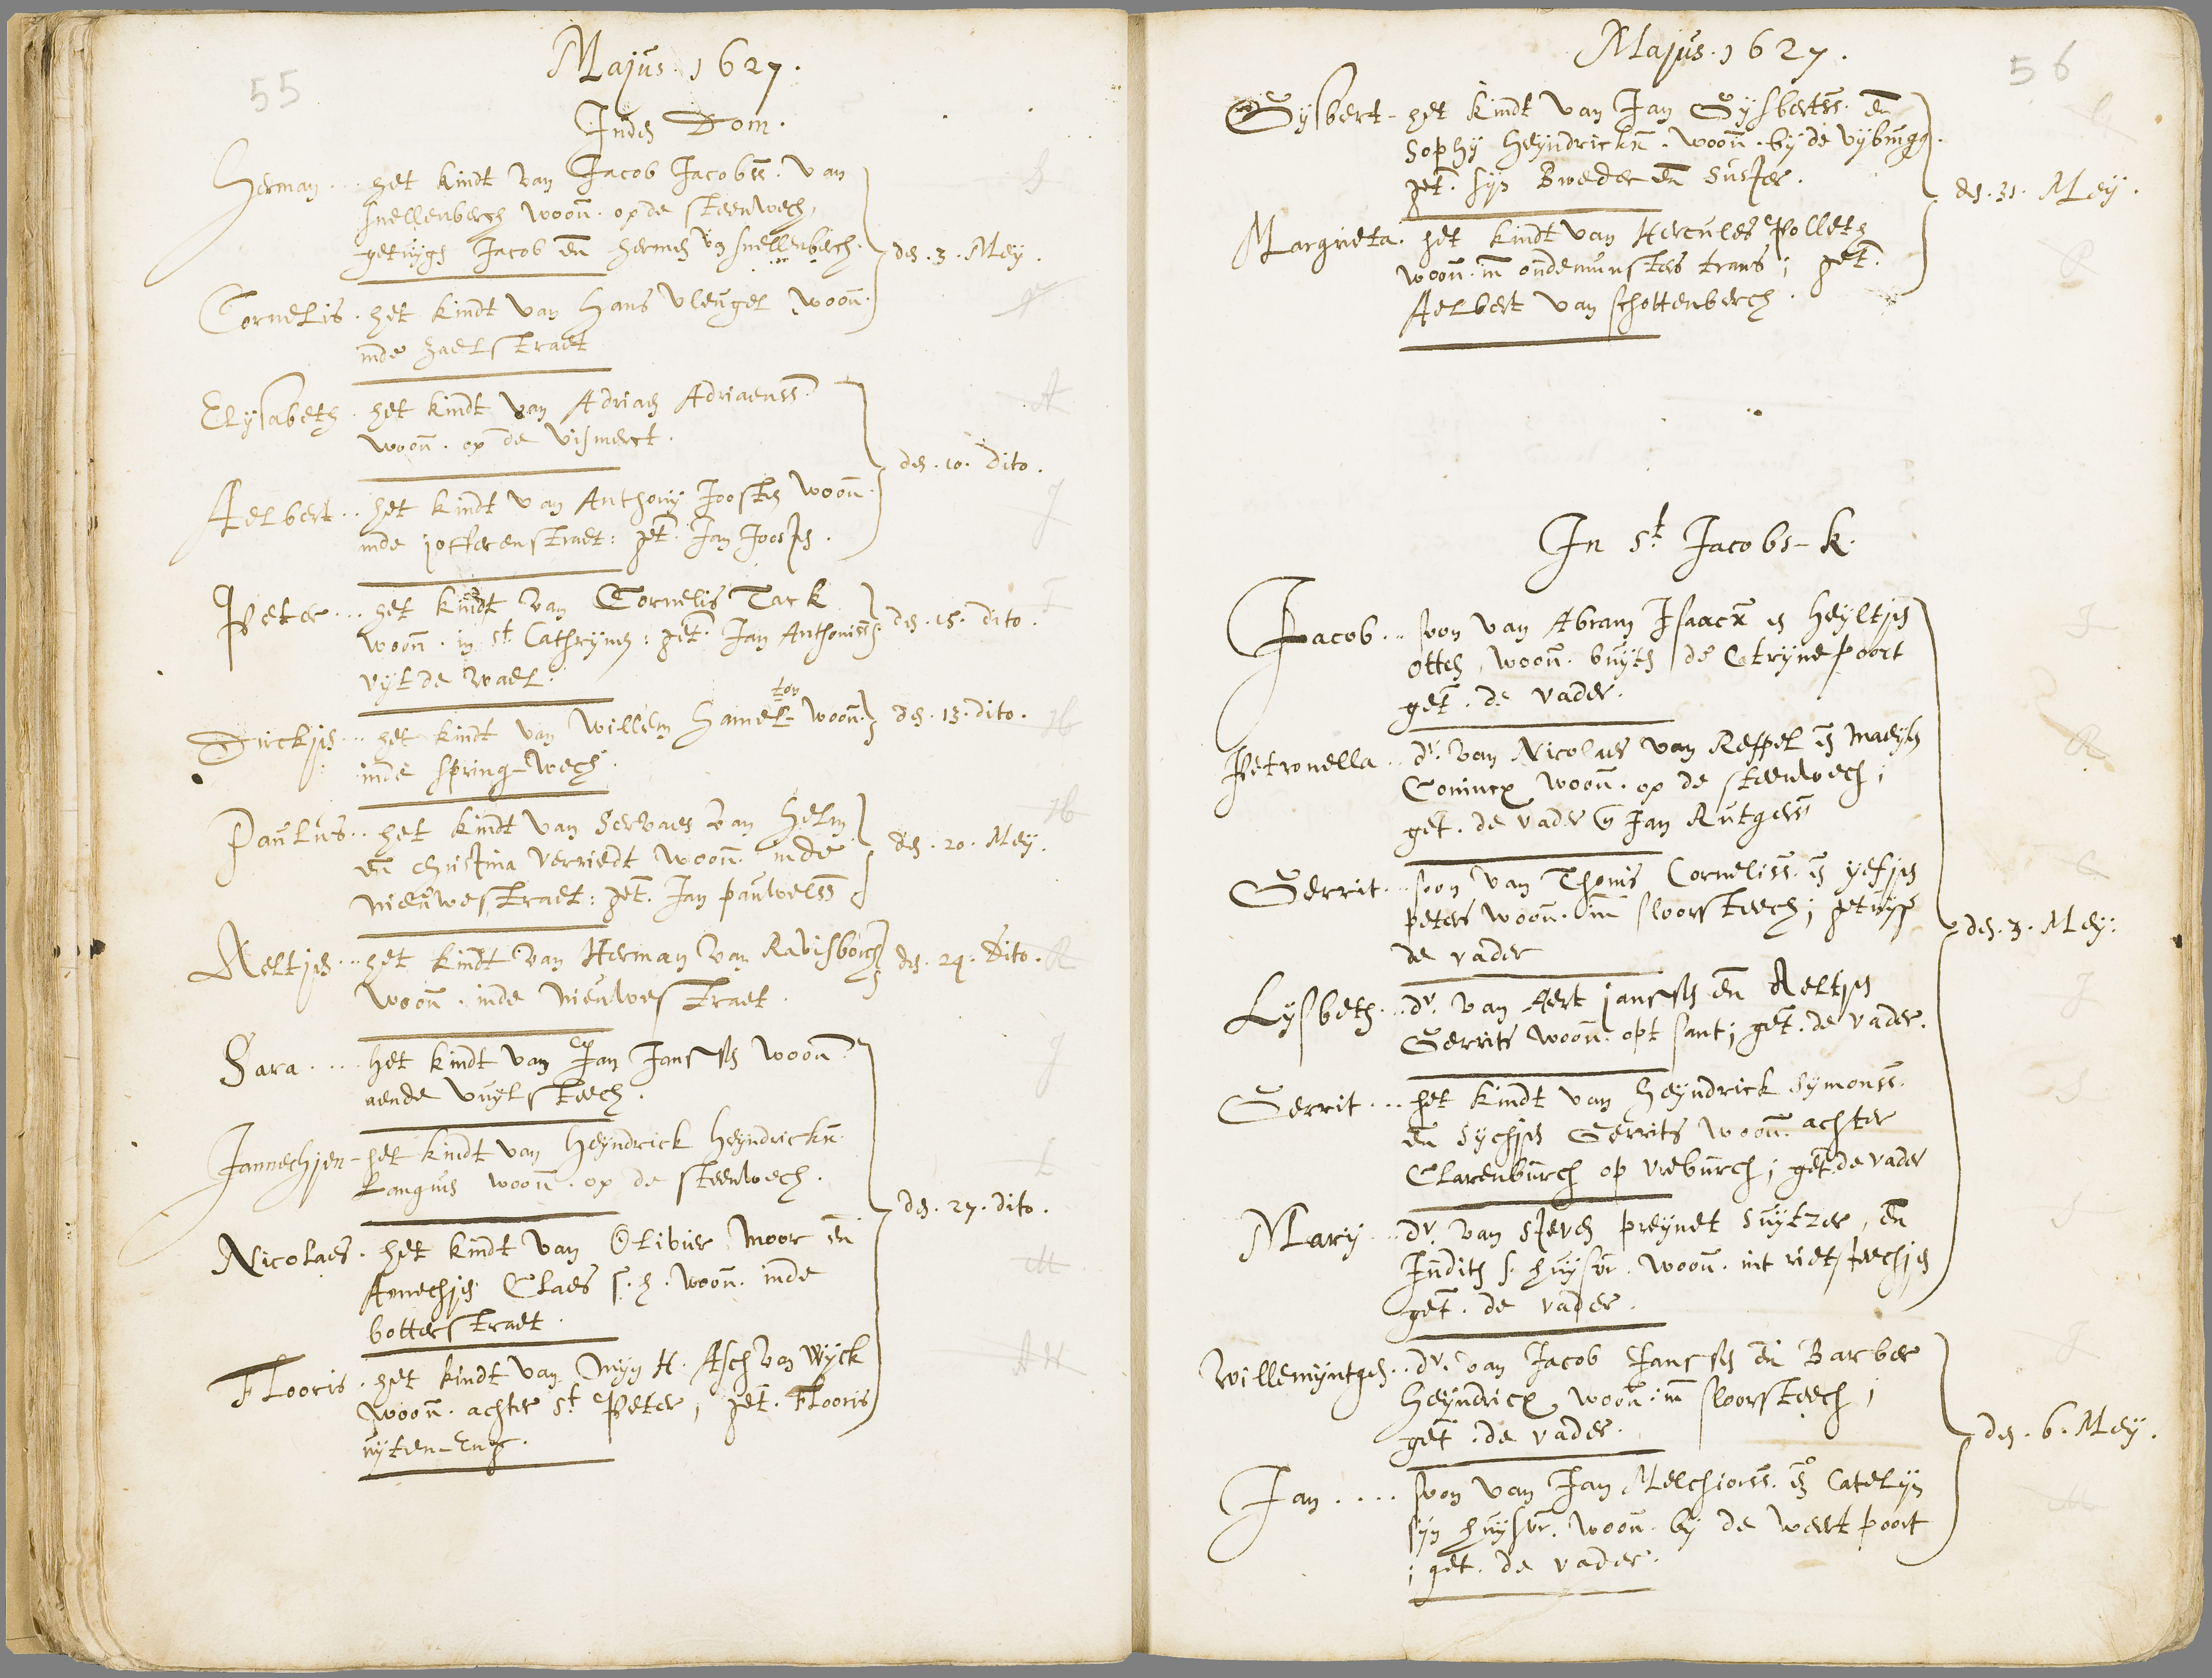 55
Majus. 1627.
Inden Dom.
Herman... het kindt van Jacob Jacobss. van
Snellenberch woon. op de steenwech,
getuygen Jacob en Hermen vn Snellenberch.
den. 3. Mey.
Cornelis. het kindt van Hans Vleugel woon.
inde zaelstraet
Elysabeth. het kindt van Adriaen Adriaenss.
woon. op de vismerct.
den. 10. dito.
Aelbert.. het kindt van Anthony Joosten woon.
inde jofferenstraet: get. Jan Joosten.
Peter... het kindt van Cornelis Tack
woon. in St Cathrynen: get. Jan Anthoniss
uyt de wael.
den. 15. dito.
ton
Dirckjen... het kindt van Willem Hamel- woon.
inde spring-wech.
den. 13. dito.
Paulus.. het kindt van Servaes van Helm
en Christina Verriedt woon. inde
nieuwestraet: get. Jan pauwelss
den. 20. Mey.
Aeltjen... het kindt van Herman van Ravisborch
woon. inde nieuwestraet.
den. 24. dito.
Sara.... het kindt van Jan Janssen woon
aende vuylsteech.
Jannechjen- het kindt van Heyndrick Heyndrickx.
Langius woon. op de steenwech.
den. 27. dito.
Nicolaes. het kindt van Olivier Moor en
Annechjen Claes s. h. woon. inde
botterstraet.
Flooris. het kindt van Myn H. Asch van Wyck
woon. achter St Peter, get. Flooris
uyten-Eng.
Majus. 1627.
56
Gysbert- het kindt van Jan Gysbertss. en
Sophy Heyndrickx. woon. by de
get. syn Broeder en Suster.
den. 31. Mey.
Margrieta. het kindt van Hercules Polleth
woon. in oudemunsters trans; get.
Aelbert van Schottenberch.
In St Jacobs-k.
Jacob... soon van Abram Isaacx en Heyltjen
Otten, woon. buyten de Ctrynepoort
get. de vader.
Petronella.. dr. van Nicolaes van Reppel en Maeyken
Conincx woon. op de steenwech;
get. de vader en Jan Rutgerss
Gerrit... soon van Thonis Corneliss. en yefjen
peters woon. in sloorsteech; getuyge
de vader
den. 3. Mey.
Lysbeth... dr. van Aert janssen en Aeltjen
Gerrits woon. opt sant; get. de vader.
Gerrit... het kindt van Heyndrick Symonss.
en Sychjen Gerrits woon. achter
Clarenburch op vreburch; get. de vader
Mary... dr. van Steven preynet Suytzer, en
Judith s. huysvr. woon. int rietsteechjen
get. de vader.
Willemyntgen.. dr. van Jacob Janssen en Barber
Heyndricx, woon. in sloorsteech;
get. de vader.
den. 6. Mey.
Jan.... soon van Jan Melchiorss. en Catelyn
syn huysvr. woon. by de weertpoort
; get. de vader.